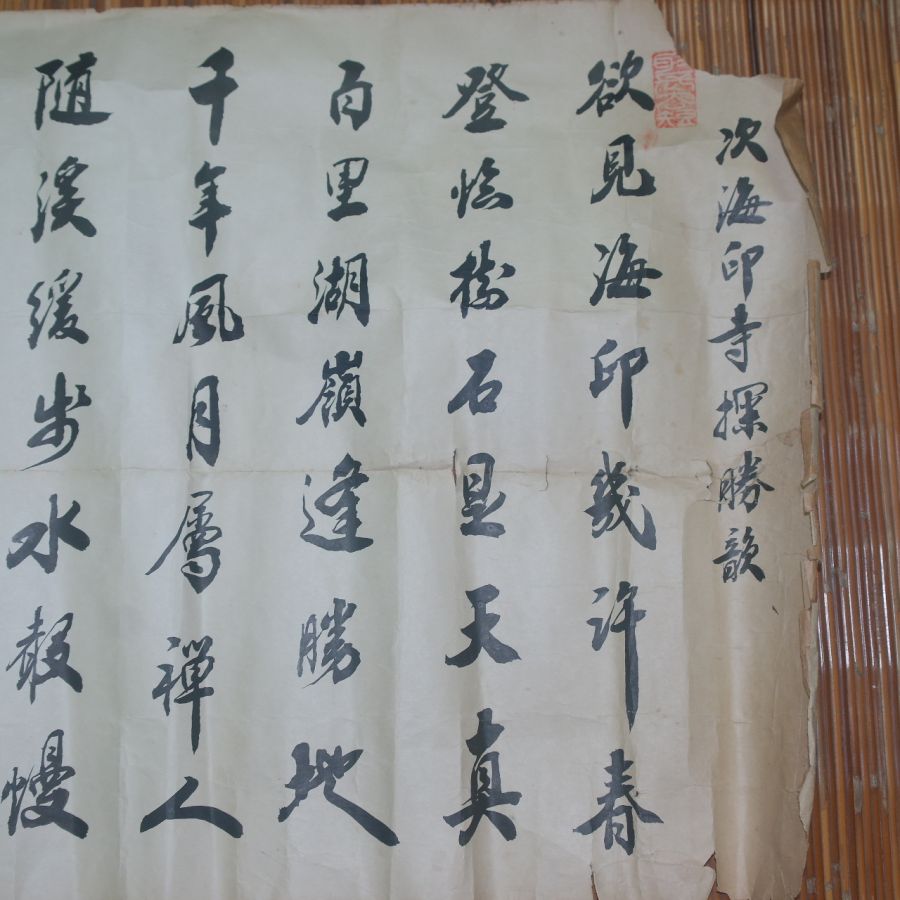 次海印寺探勝韻
欲見海印幾許春
登臨樹石昰天真
百里湖嶺逢勝地
千年風月屬禪人
随溪緩步水幔